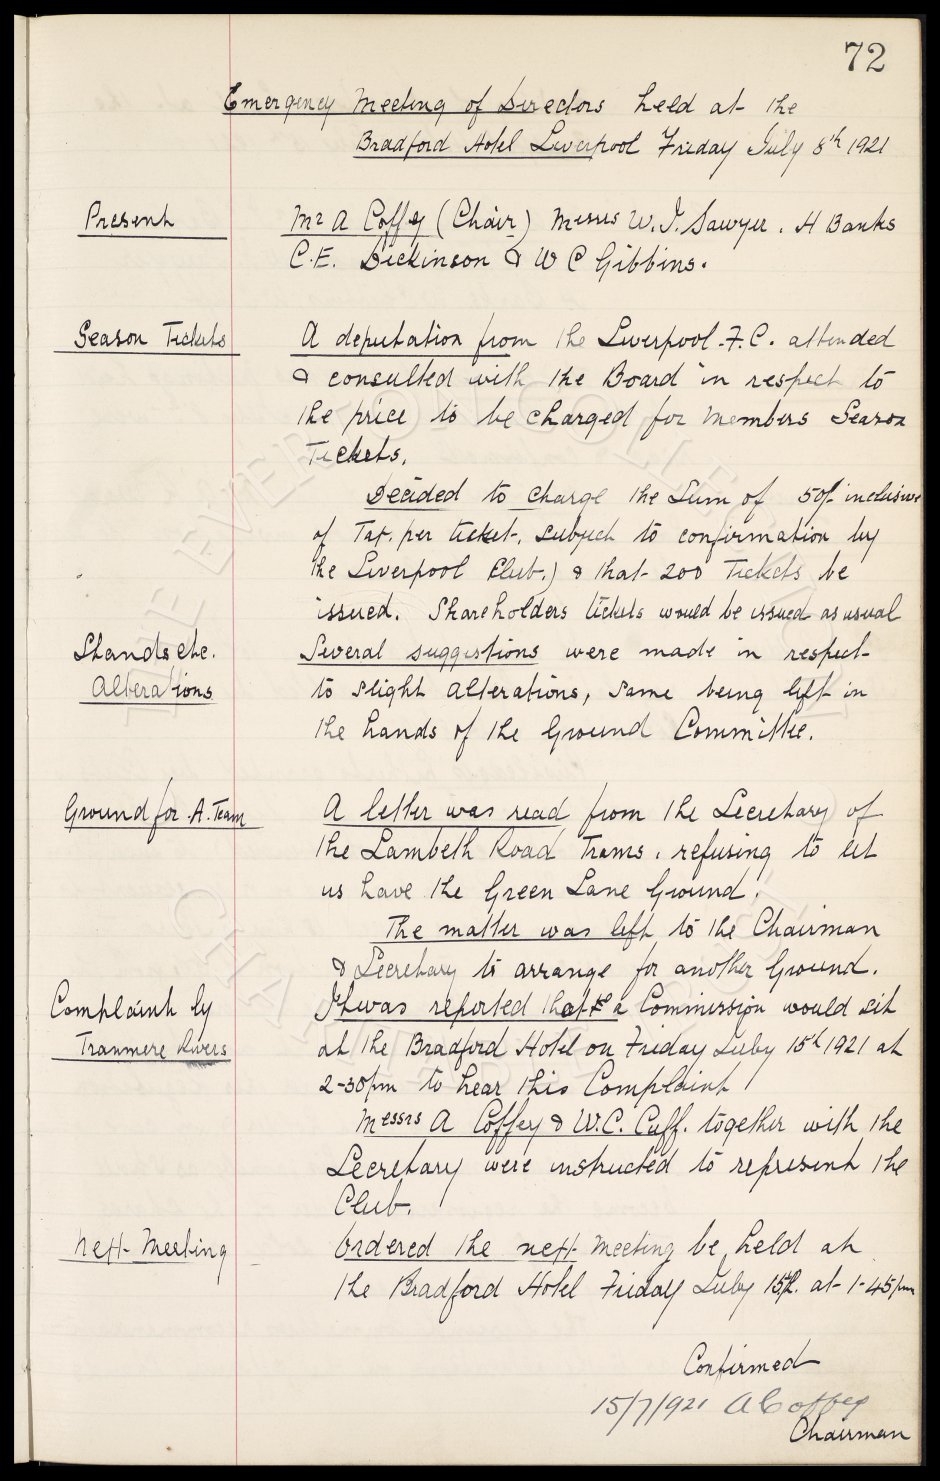 72
Emergency Meeting of Directors held at the
Bradford Hotel Liverpool Friday July 8th 1921
Present
Mr A Coffey (Chair) Messrs W. J. Sawyer. H Banks
C.E. Dickinson & W C Gibbins.
Season Tickets
A deputation from the Liverpool. F.C. attended
& consulted with the Board in respect to
the price to be charged for Members Season
Tickets.
Decided to charge the Sum of 50/- inclusive
of Tax. per ticket, subject to confirmation by
the Liverpool Club.) & that 200 Tickets be
issued. Shareholders tickets would be issued as usual
Stands etc.
Alterations
Several suggestions were made in respect
to slight alterations, same being left in
the hands of the Ground Committee.
Ground for A. Team
A letter was read from the Secretary of
the Lambeth Road Trams. refusing to let
us have the Green Lane Ground.
The matter was left to the Chairman
& Secretary to arrange for another Ground.
Complaint by
Tranmere Rovers
It was reported that a Commission would sit
at the Bradford Hotel on Friday July 15th 1921 at
2-30pm to hear this Complaint
Messrs A Coffey & W.C. Cuff. together with the
Secretary were instructed to represent the
Club.
Next Meeting
Ordered the next meeting be held at
the Bradford Hotel Friday July 15th. at 1-45pm
Confirmed
15/7/1921 A Coffey
Chairman
THE EVERTON COLLECTION
CHARITABLE TRUST